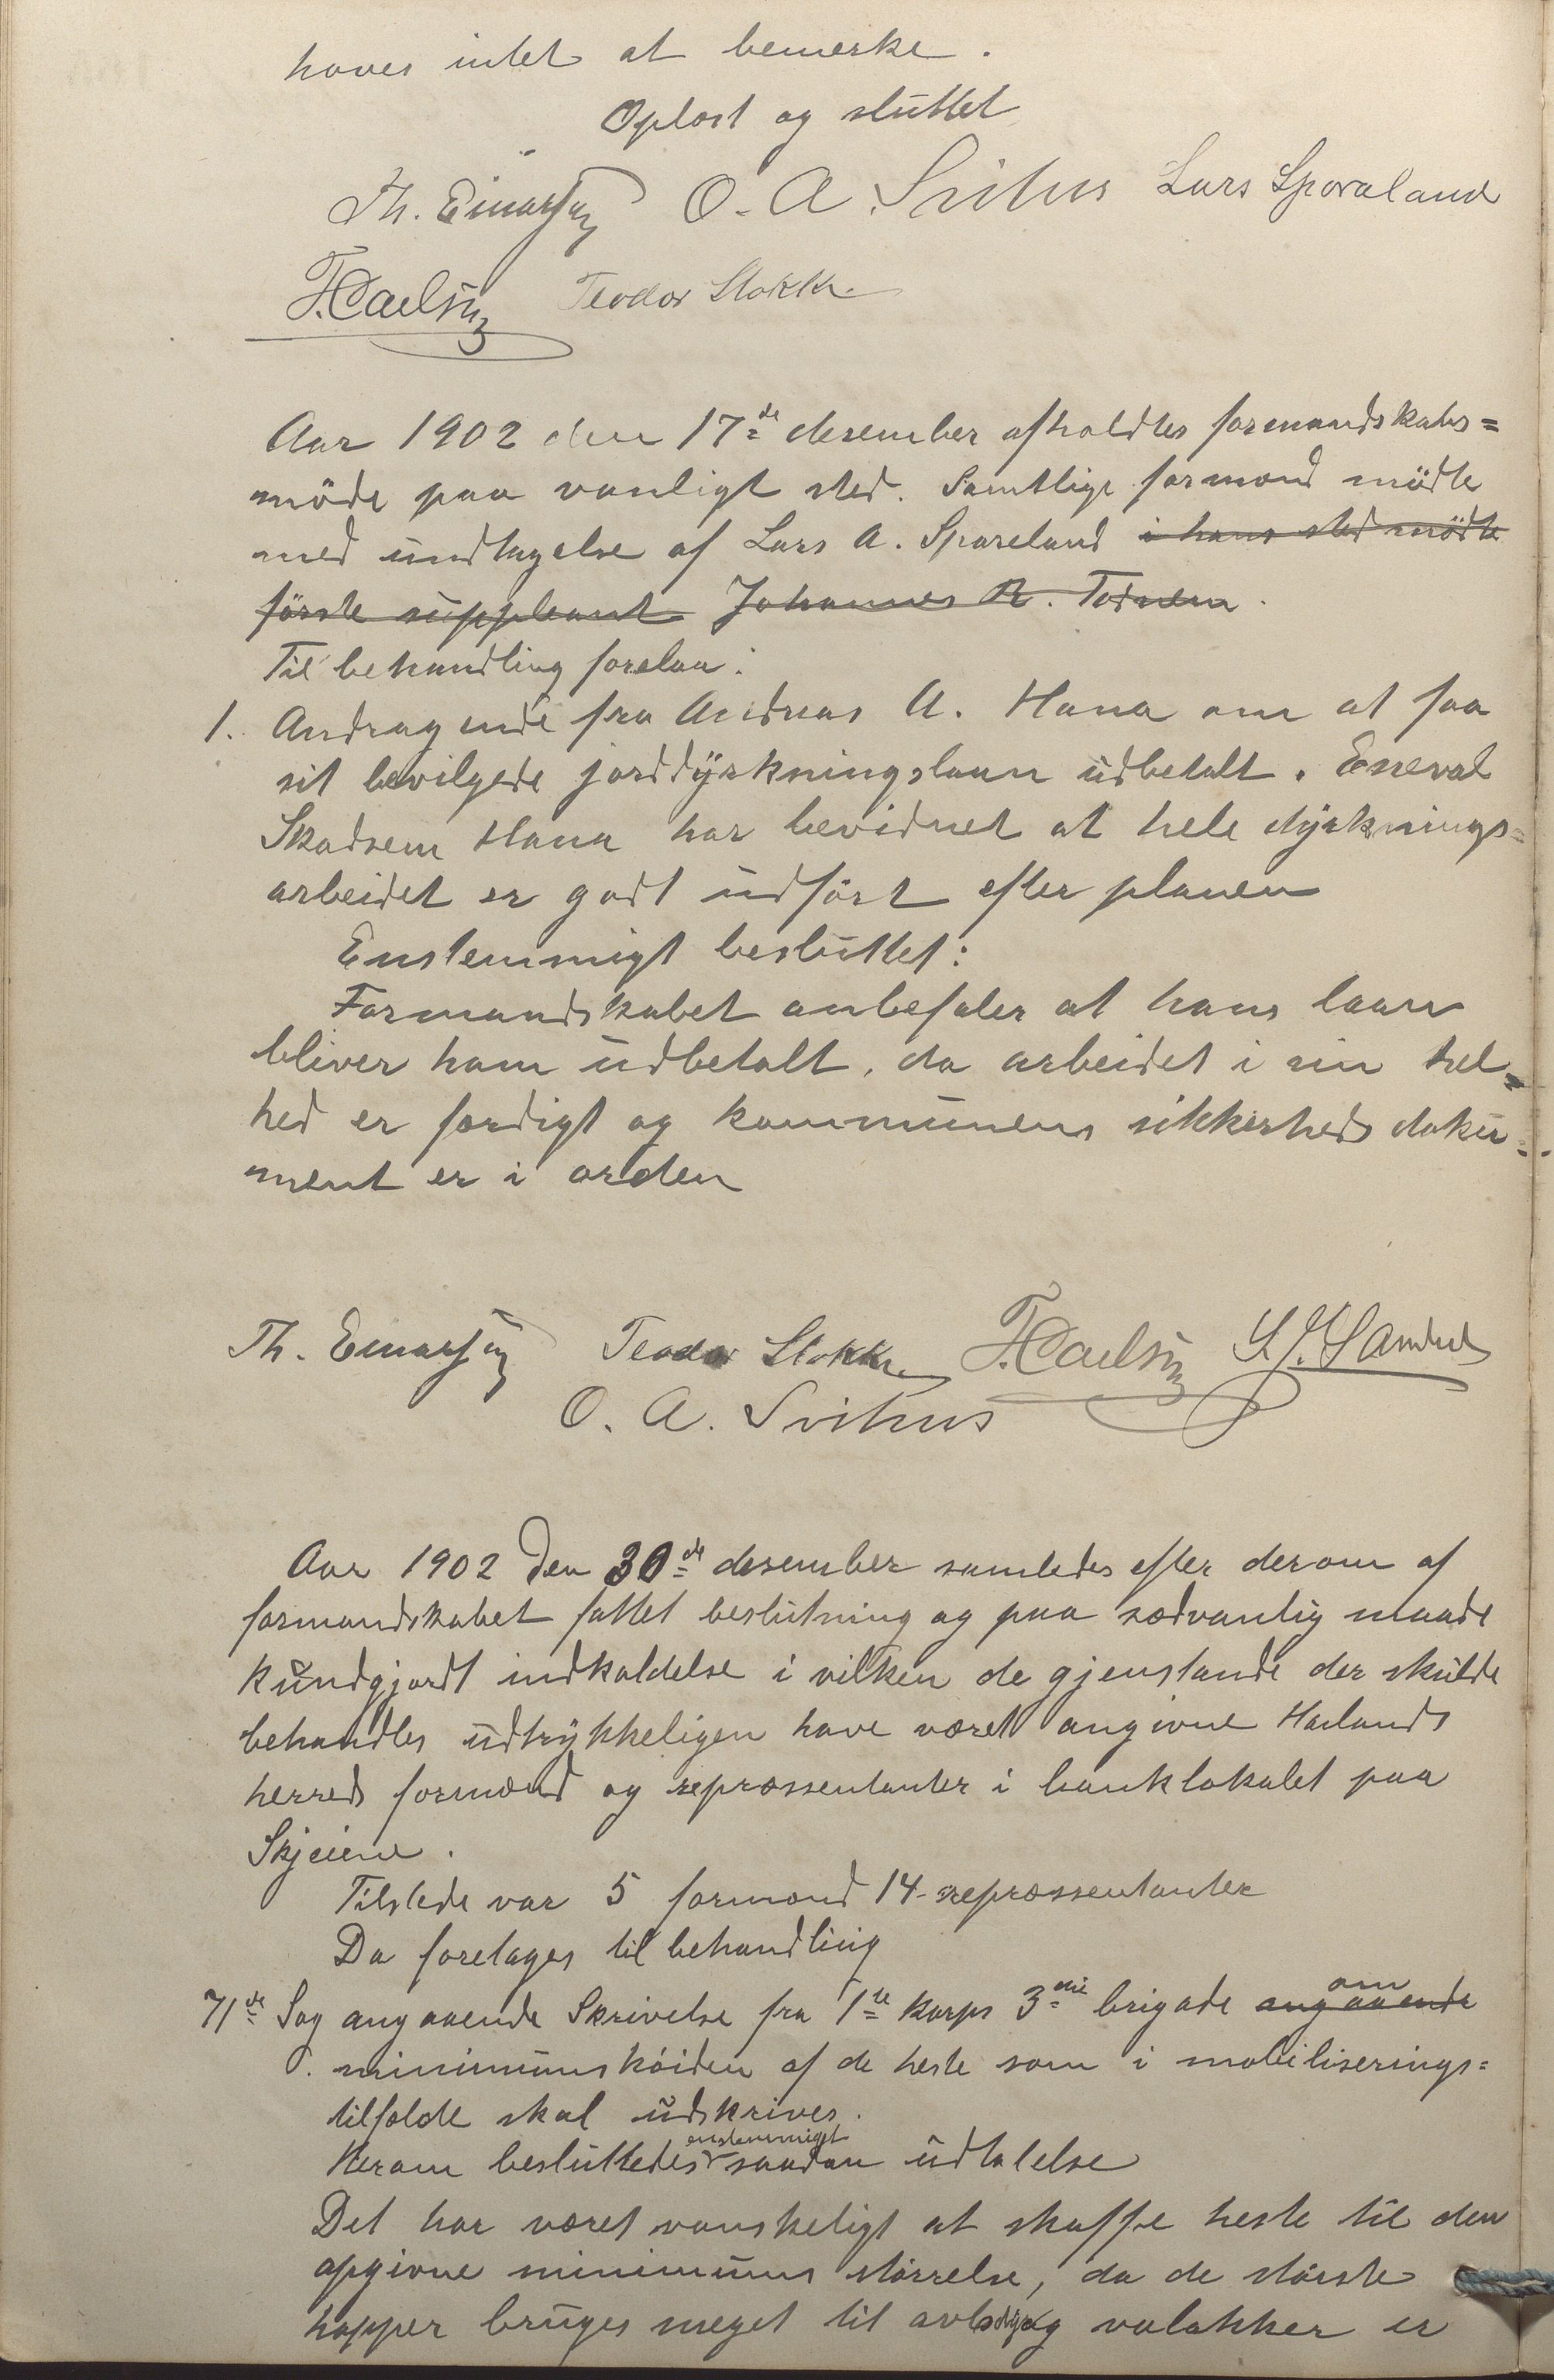 haves intet at bemerke.
Oplæst og sluttet
Th. Einarsen O. A. Svihus Lars Sporaland
T. Carlsen Teodor Stokke
Aar 1902 den 17de desember afholdtes formandskabs=
möde paa vanligt sted. Samtlige formænd mödte
med undtagelse af Lars A. Sporeland i hans sted mödte
förste suppleant Johannes R. Todnem.
Til behandling forelaa:
1. Andragende fra Andreas A. Hana om at faa
sit bevilgede jorddyrkningslaan udbetalt. Eneval
Skadsem Hana har bevidnet at hele dyrknings=
arbeidet er godt udfört efter planen
Enstemmigt besluttet:
Formandskabet anbefaler at hans laan
bliver ham udbetalt, da arbeidet i sin hel=
hed er færdigt og kommunens sikkerheds doku=
ment er i orden
Th. Einarsen Teodor Stokke T. Carlsen
O. A. Svihus
Aar 1902 den 30de desember samledes efter derom af
formandskabet fattet beslutning og paa sædvanlig maade
kundgjordt indkaldelse i vilken de gjenstande der skulde
behandles udtrykkeligen have været angivne Haalands
herreds formænd og repræssentanter i banklokalet paa
Skjeiene.
Tilstede var 5 formænd 14 repræssentanter
Da foretages til behandling
71de Sag angaaende Skrivelse fra 1ste korps 3die brigade angaaende om
minimumshöiden af de heste som i mobiliserings=
tilfælde skal udskrives.
Herom besluttedes enstemmigt saadan udtalelse
Det har været vanskeligt at skaffe heste til den
opgivne minimums störrelse, da de störste
hopper bruges meget til avlsdyr og valakker er